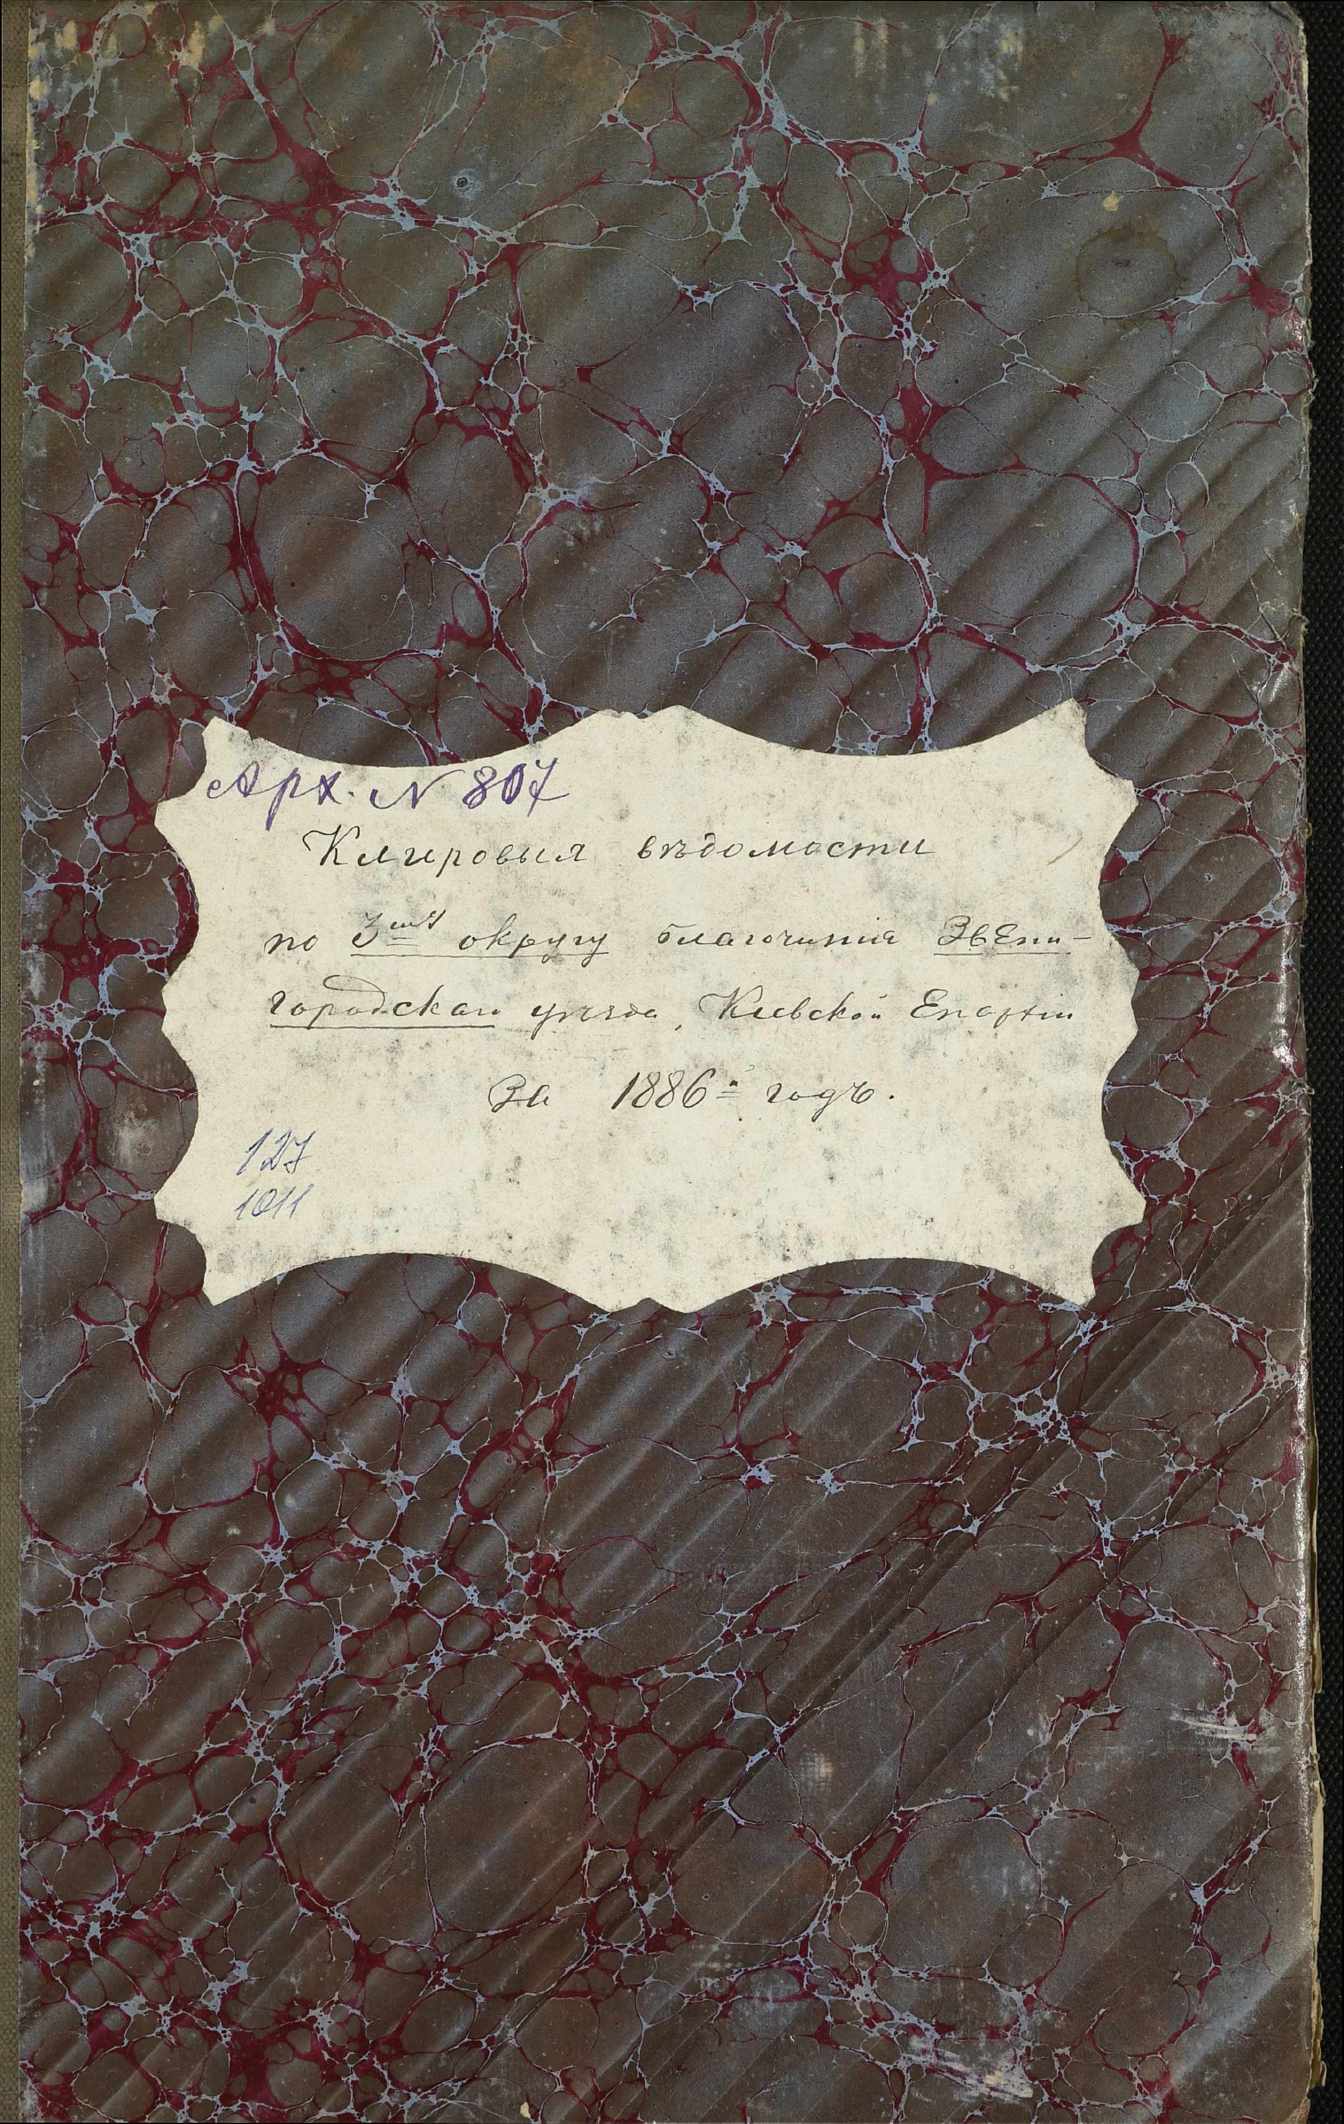 Арх. N 807
Клировыя вѣдомости
по 3му округу благочинія Звени-
городскаго уѣзда, Кіевской Епархіи
За 1886й годъ.
127
1011